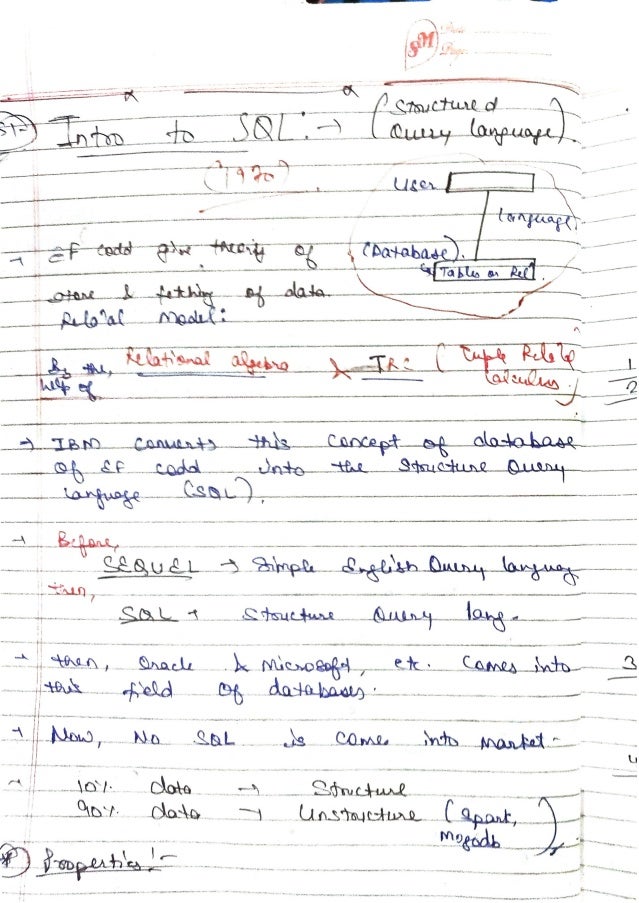 SM Date
Page
Intro to SQL :→ (Structured
Query language)
(1970)
User
language
(Database)
Tables or Rel
→ EF codd give theory of
store & fetching of data
Rela'al Model:
By the, Relational algebra & TRC (Tuple Rela'al
help of Calculus)
→ IBM converts this concept of database
of EF codd into the Structure Query
language (SQL).
→ Before,
SEQUEL → Simple English Query languag
then,
SQL → Structure Query lang.
→ then, Oracle & Microsoft, etc. Comes into
this field of databases.
→ Now, No SQL is come into market-
→ 10% data → Structure
90% data → Unstructure (Spark,
Mogodb)
* Properties:-
1
2
3
4